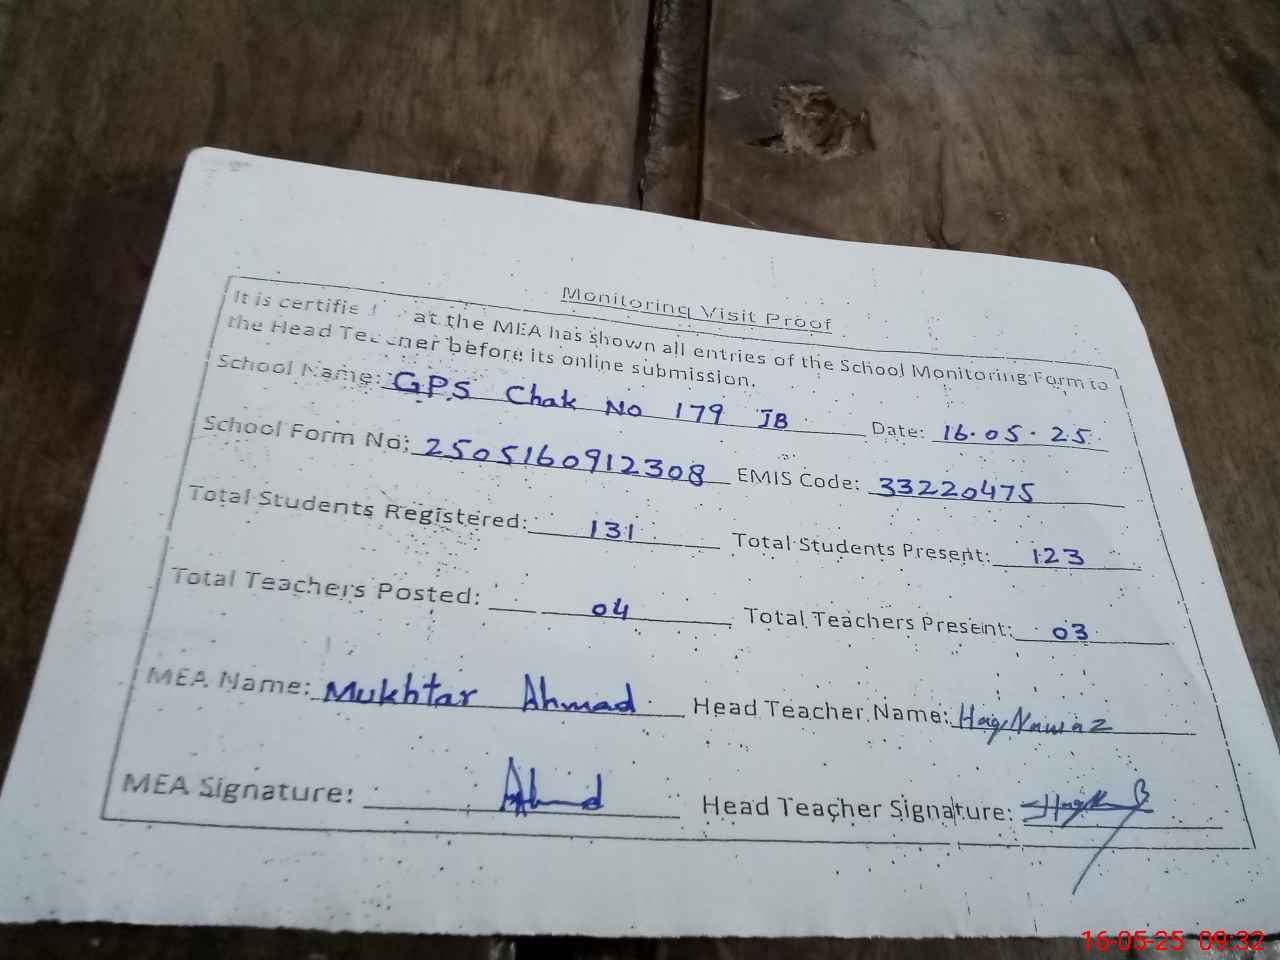 Monitoring Visit Proof
It is at the MEA has shown all entries of the School Monitoring Form to
the Head Teacher before its online submission.
School Name: GPS Chak No 179 JB Date: 16.05.25
School Form No: 2505160912308 EMIS Code: 33220475
Total Students Registered: 131 Total Students Present: 123
Total Teachers Posted: 04 Total Teachers Present: 03
MEA Name: Mukhtar Ahmad Head Teacher Name: Haq Nawaz
MEA Signature: Head Teacher Signature:
16-05-25 09:32